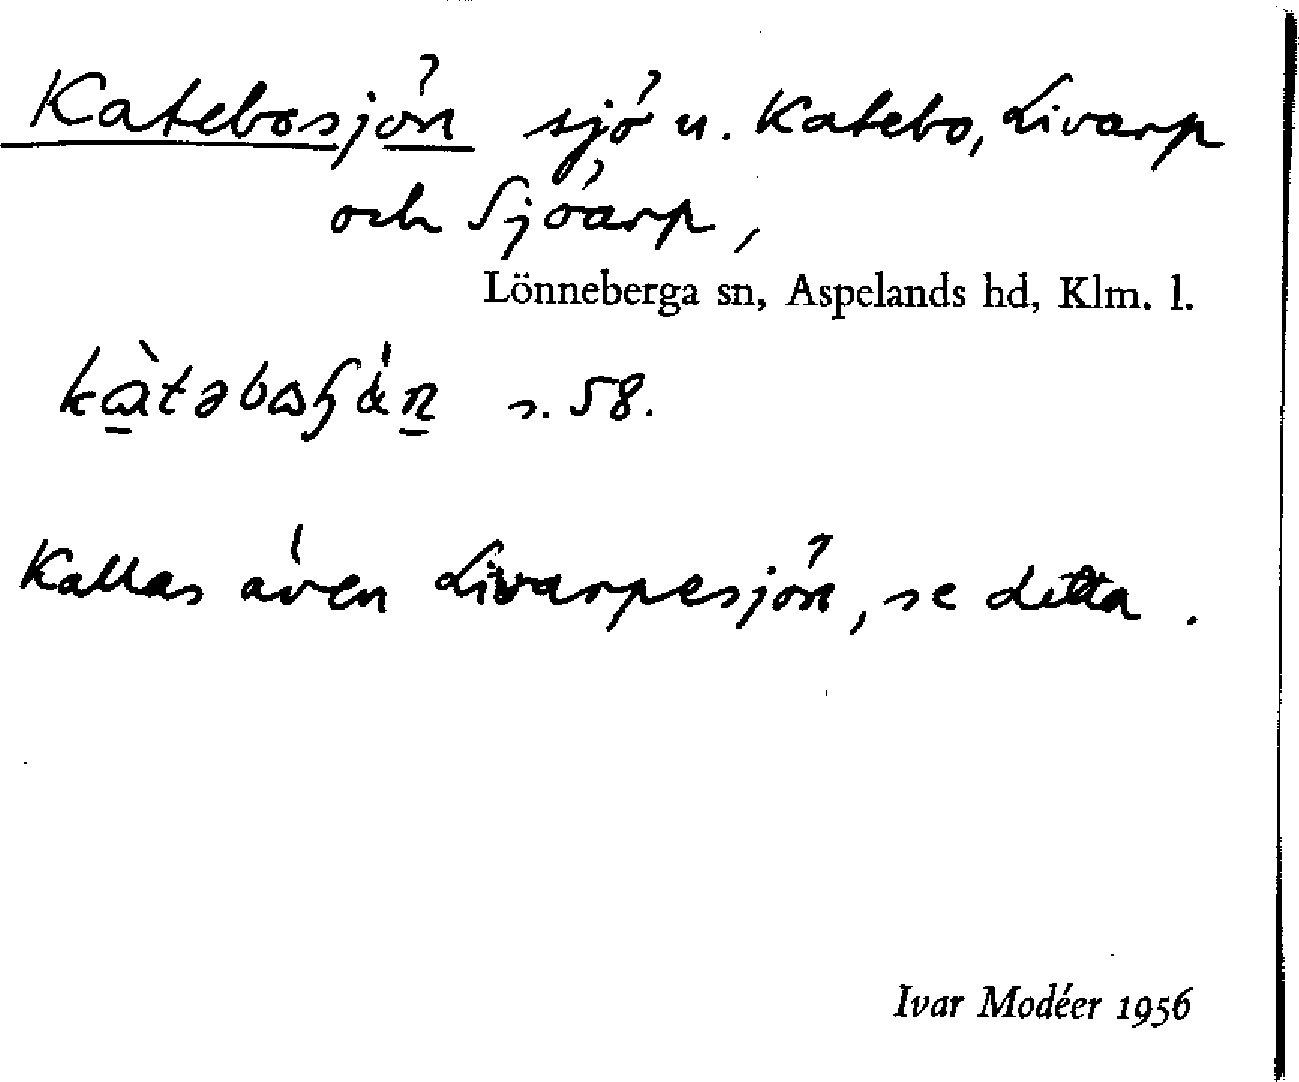 Katebosjön sjö u. Katebo, Livarp
och Sjöarp,
Lönneberga sn, Aspelands hd, Klm. l.
s. 58.
Kallas även Livarpesjön, se detta.
Ivar Modéer 1956